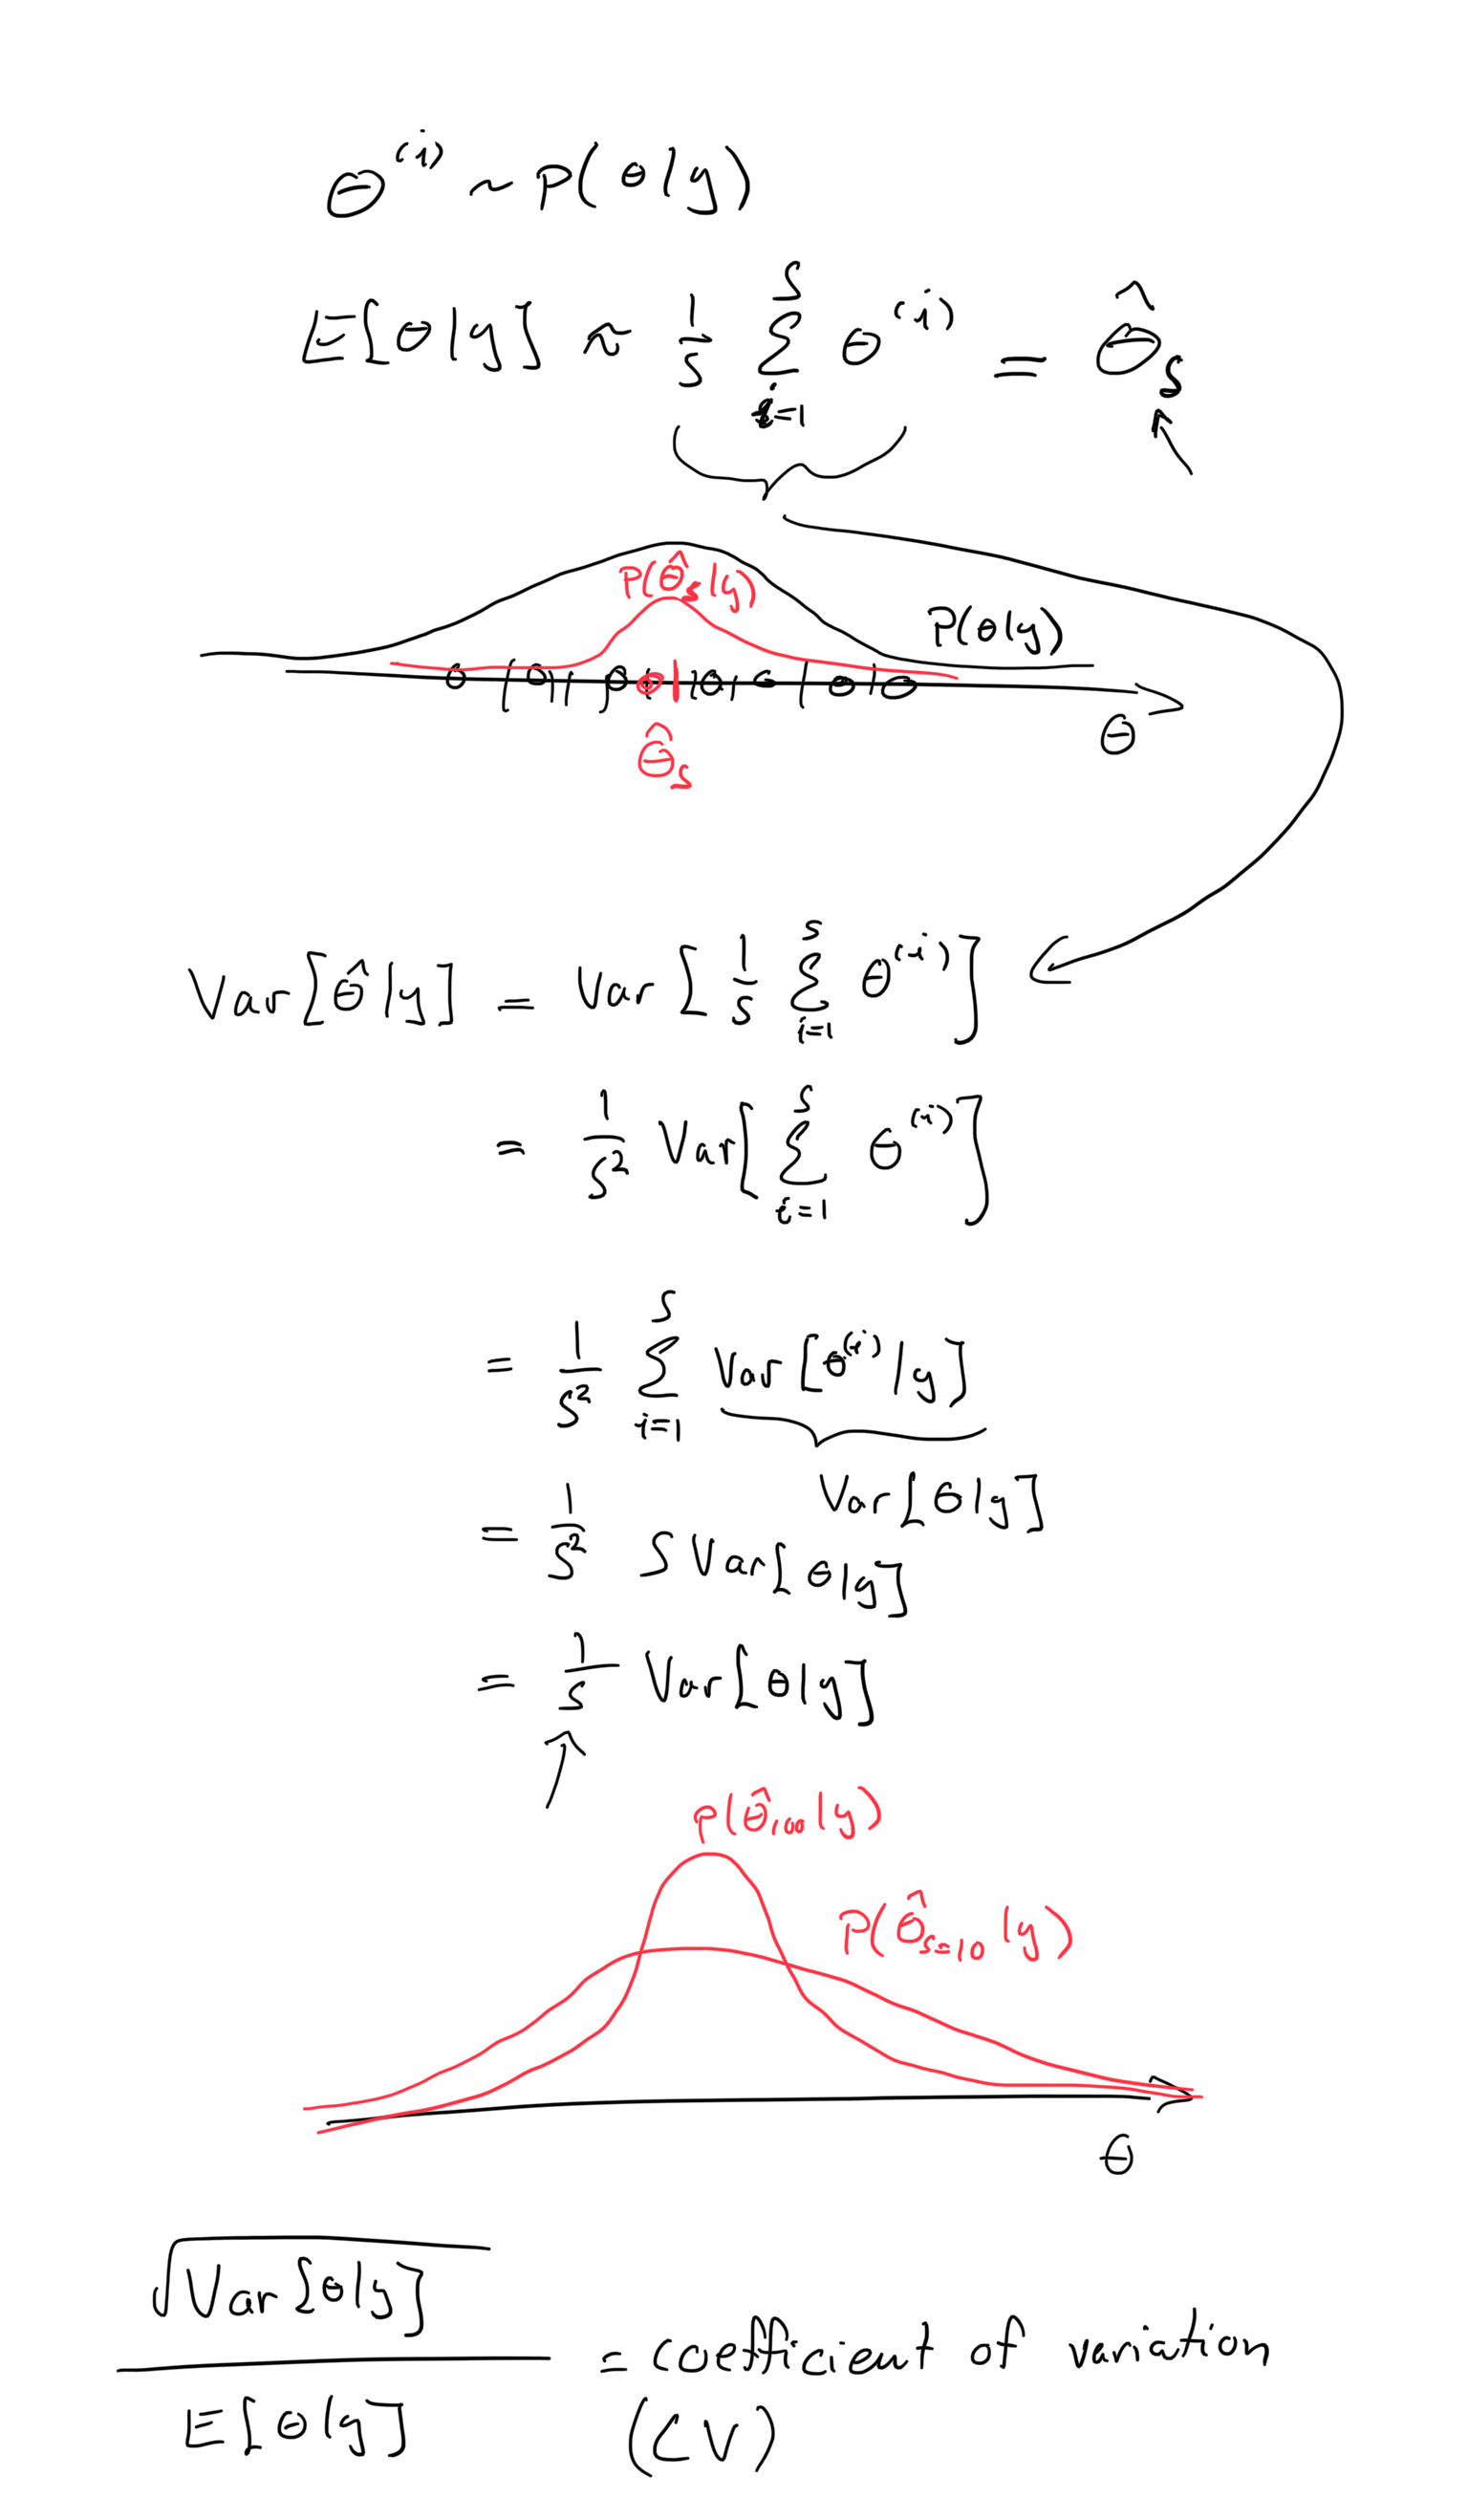 θ⁽ⁱ⁾ ~ P(θ|y)
E[θ|y] ≈ 1/S Σ_{i=1}^{S} θ⁽ⁱ⁾ = θ̂_S
P(θ̂_S|y)
P(θ|y)
θ
θ̂_S
Var[θ̂|y] = Var[1/S Σ_{i=1}^{S} θ⁽ⁱ⁾]
= 1/S² Var[Σ_{i=1}^{S} θ⁽ⁱ⁾]
= 1/S² Σ_{i=1}^{S} Var[θ⁽ⁱ⁾|y]
Var[θ|y]
= 1/S² S Var[θ|y]
= 1/S Var[θ|y]
P(θ̂₁₀₀|y)
P(θ̂_{S=10}|y)
θ
√Var[θ|y] / E[θ|y] = coefficient of variation
(CV)